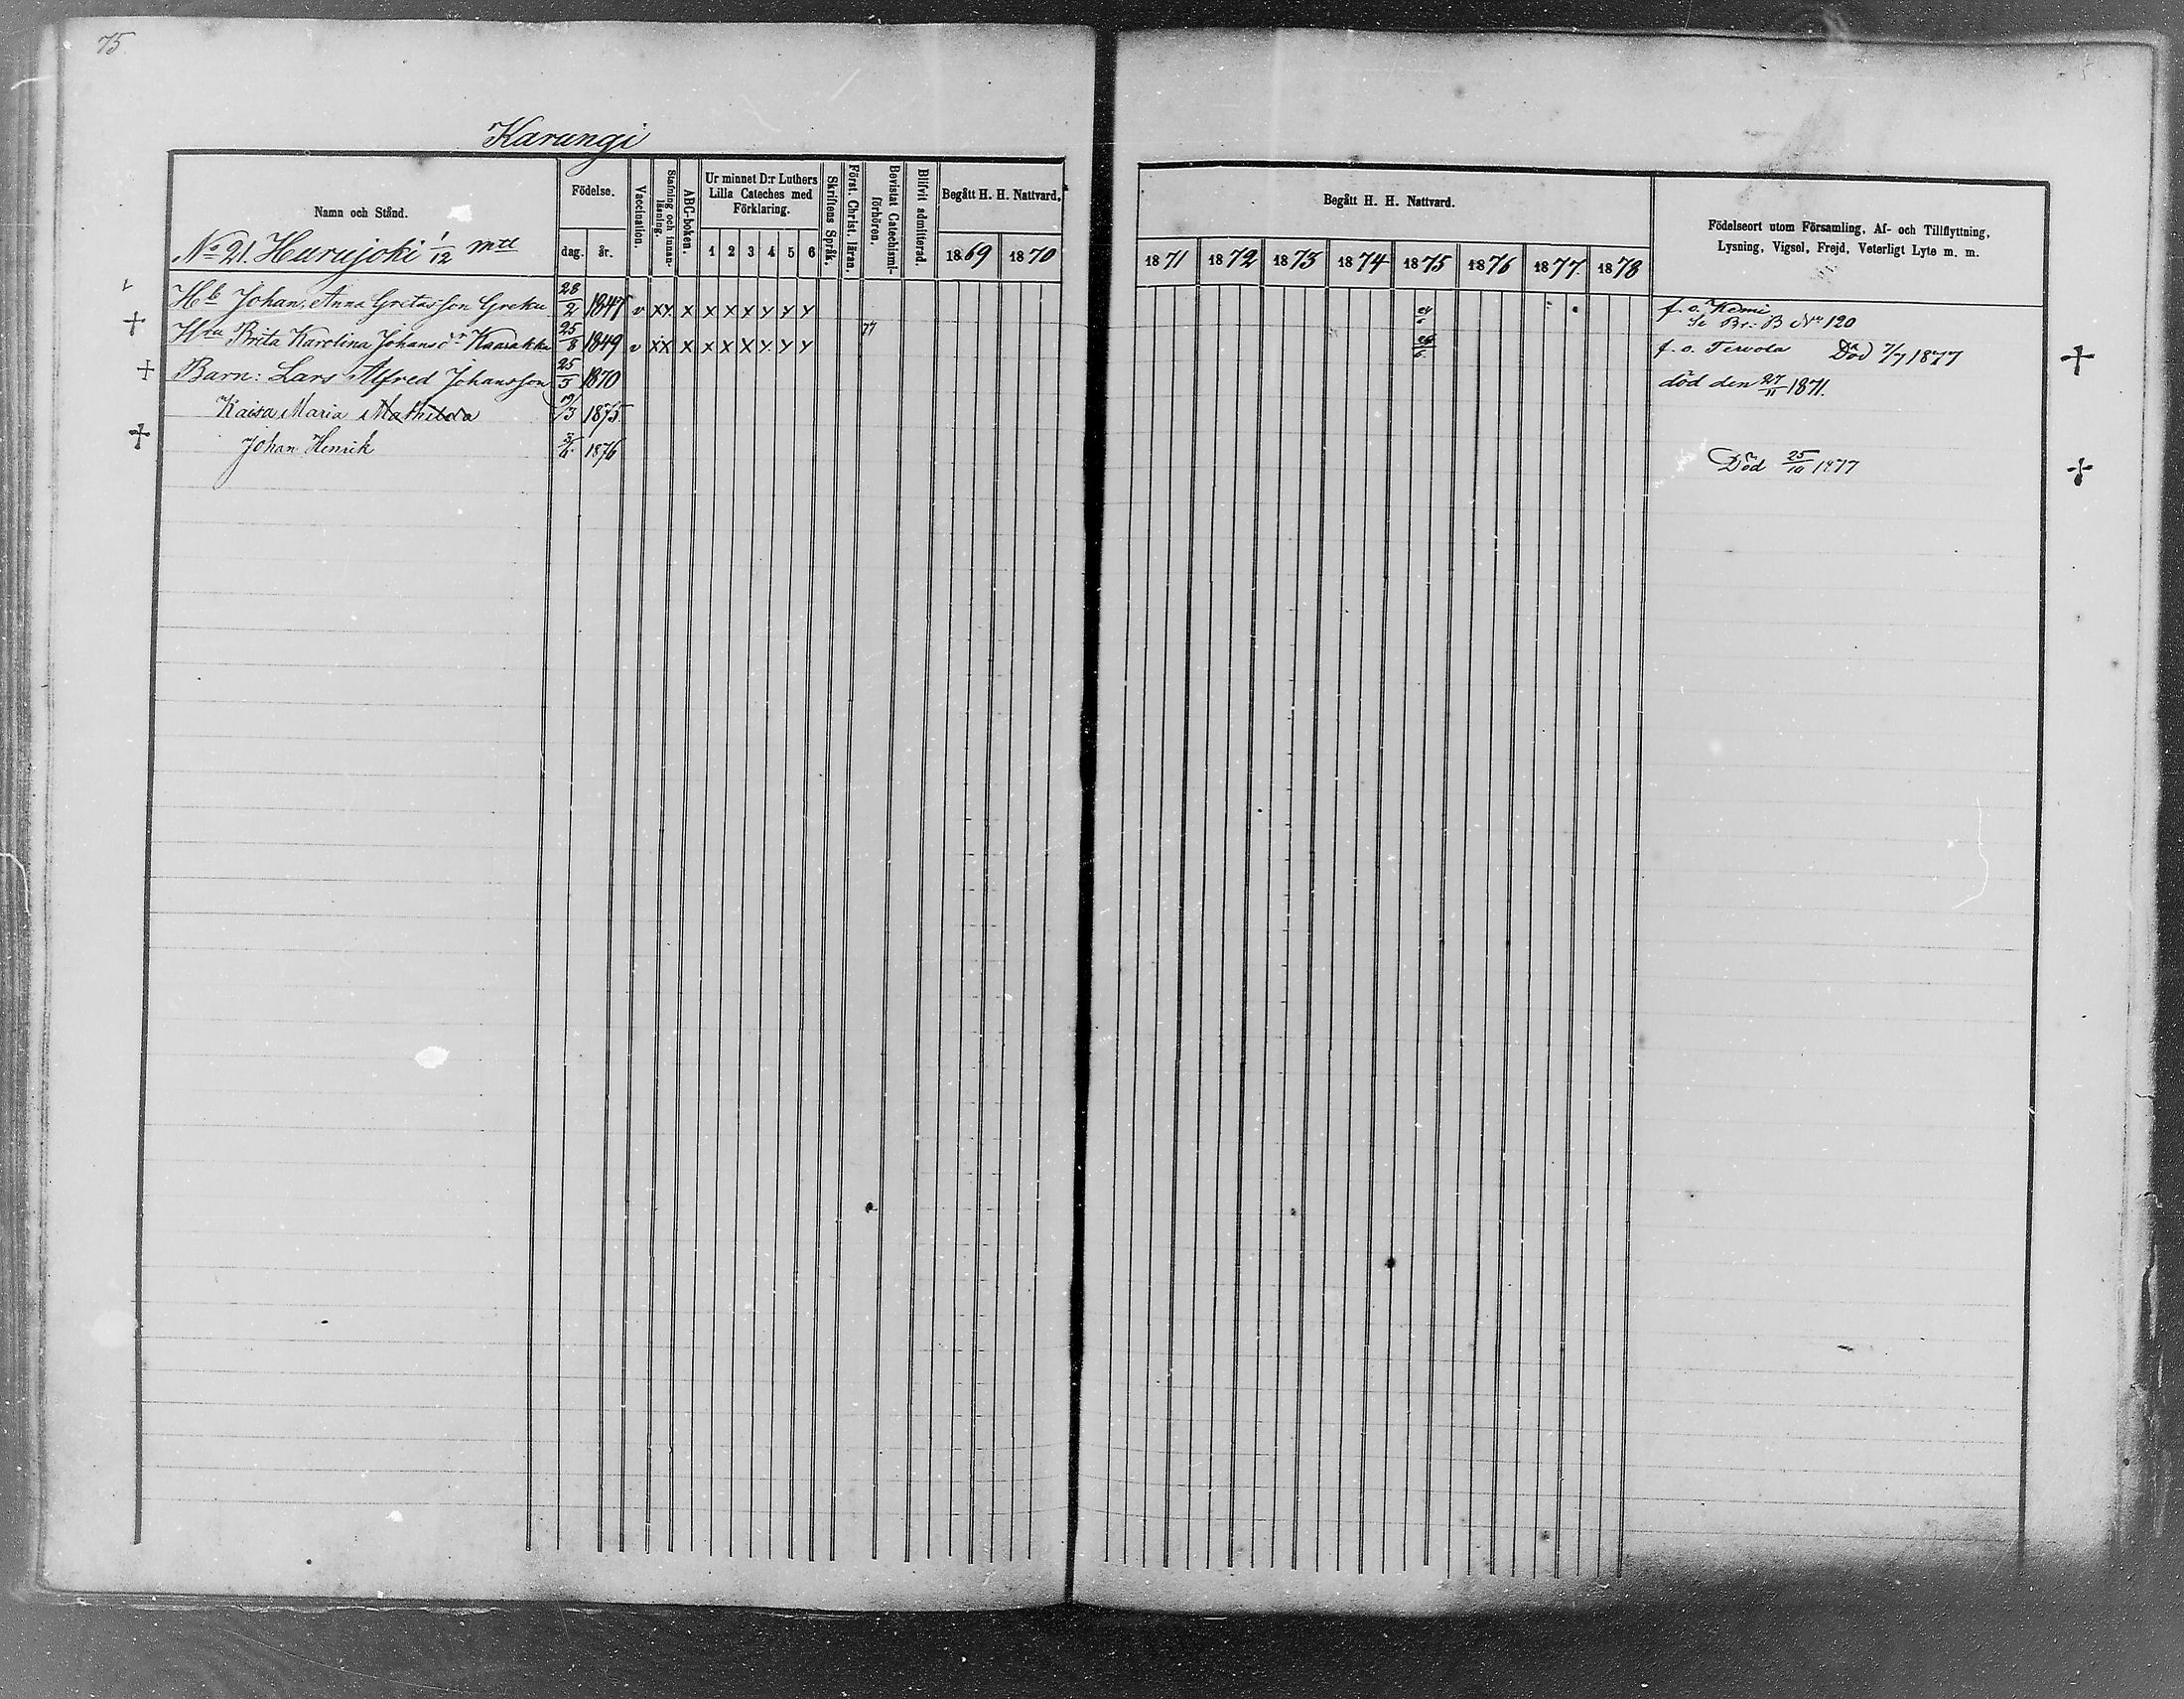 75.
Karungi
Namn och Stånd.
Födelse.
dag.
år.
Vaccination.
Stafning och innanläsning.
ABC-boken.
Ur minnet D:r Luthers Lilla Cateches med Förklaring.
1 2 3 4 5 6
Skriftens Språk.
Först. Christ. läran.
Bevistat Catechismi-förhören.
Blifvit admitterad.
Begått H. H. Nattvard.
1869 1870
Begått H. H. Nattvard.
1871 1872 1873 1874 1875 1876 1877 1878
Födelseort utom Församling, Af- och Tillflyttning,
Lysning, Vigsel, Frejd, Veterligt Lyte m. m.
No 21. Hurujoki 1/12 mtl
Hb Johan Anna Gretasson Greku 28/2 1847 v xx x x x x y y y f. o. Kemi
Se Br: B No 120
+ Hru Brita Karolina Johansdr Kaarakka 25/8 1849 v xx x x x x y y y 77 f. o. Tervola Död 7/7 1877 +
+ Barn: Lars Alfred Johansson 25/5 1870 död den 27/11 1871.
Kaisa Maria Mathilda 19/3 1875.
+ Johan Henrik 1876 Död 25/10 1877 +